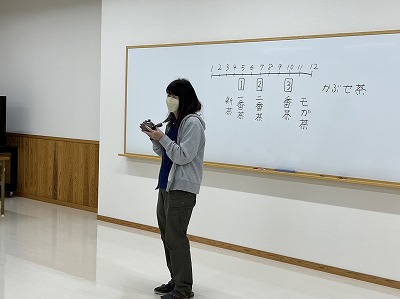 1 2 3 4 5 6 7 8 9 10 11 12
1 2 3
かぶせ茶
新茶
一番茶
二番茶
三番茶
モガ茶